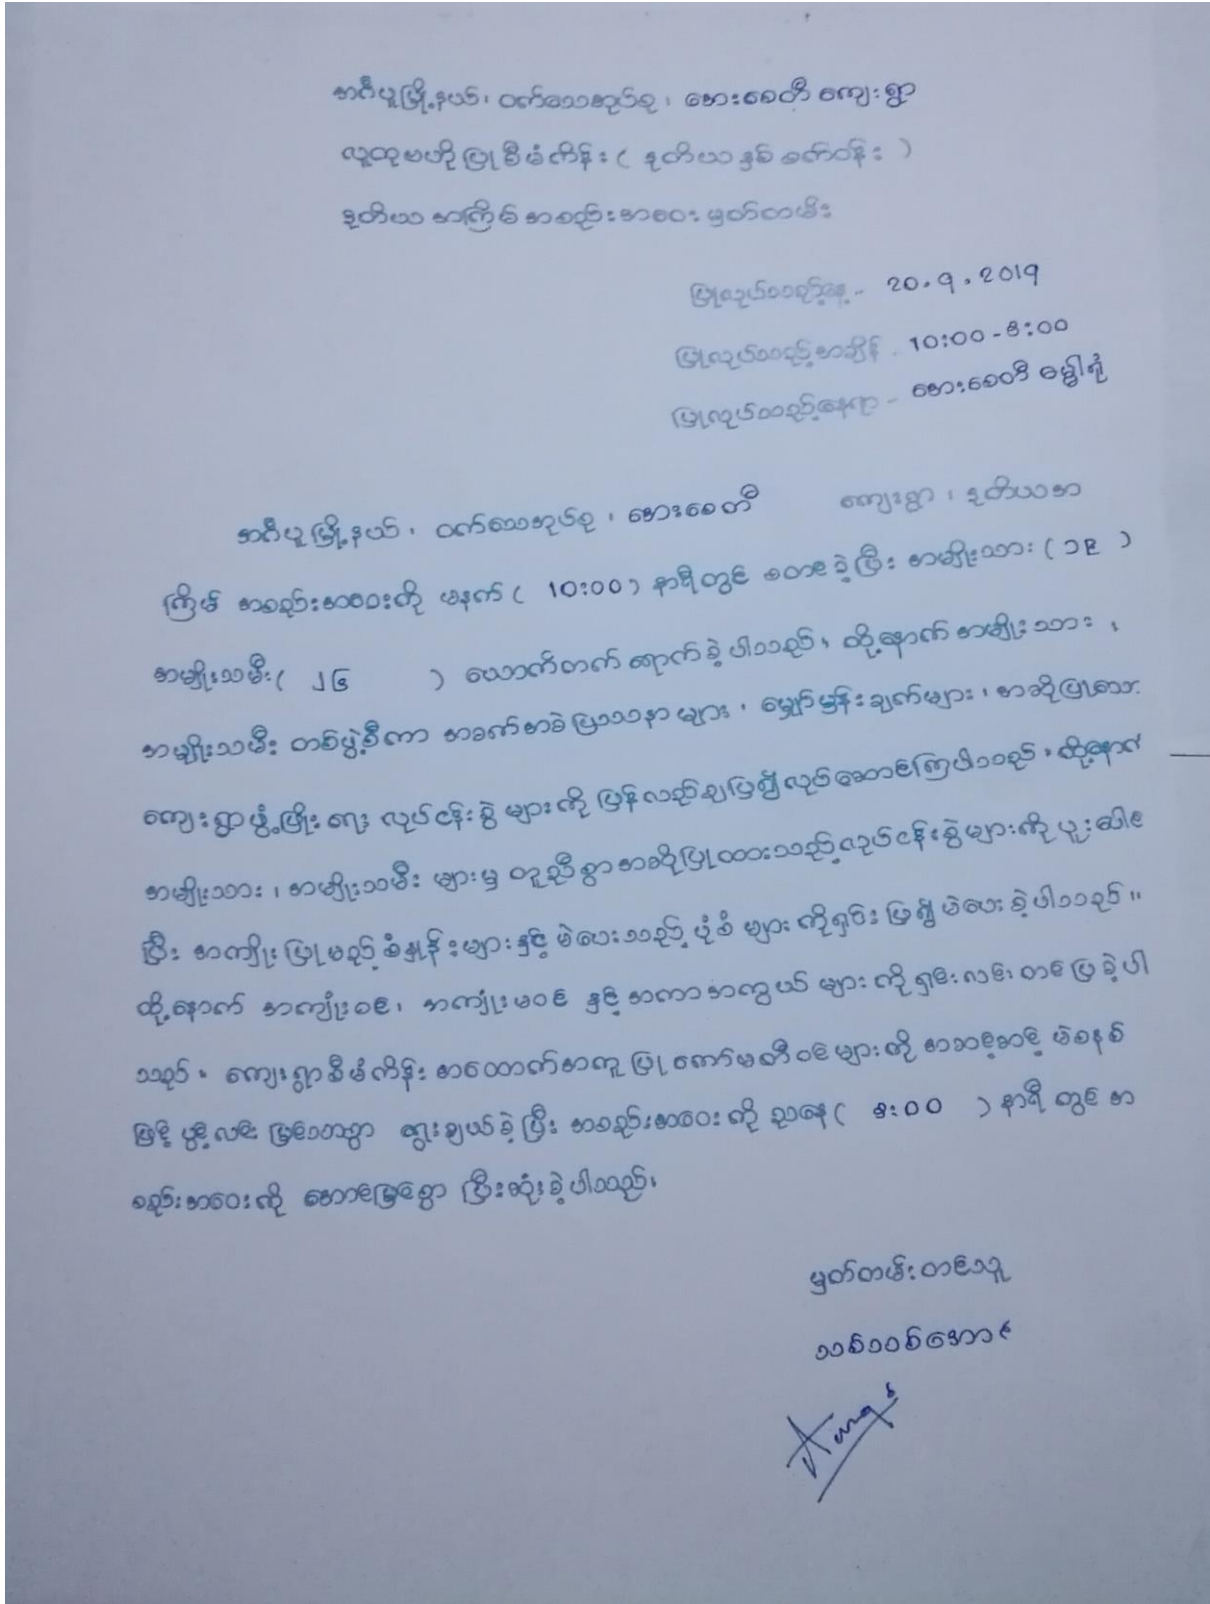 အင်္ဂပူမြို့နယ်၊ ဝက်သေအုပ်စု၊ အေးစေတီ ကျေးရွာ
လူထုဗဟိုပြုစီမံကိန်း ( ဒုတိယနှစ် စက်ဝန်း )
ဒုတိယ အကြိမ် အစည်းအဝေး မှတ်တမ်း
ပြုလုပ်သည့်နေ့ - 20.9.2019
ပြုလုပ်သည့်အချိန် - 10:00 - 3:00
ပြုလုပ်သည့်နေရာ - အေးစေတီ ဓမ္မါရုံ
အင်္ဂပူမြို့နယ်၊ ဝက်သေအုပ်စု၊ အေးစေတီ ကျေးရွာ၊ ဒုတိယအ
ကြိမ် အစည်းအဝေးကို မနက် ( 10:00 ) နာရီတွင် စတင်ခဲ့ပြီး အမျိုးသား ( ၁၉ )
အမျိုးသမီး ( ၂၆ ) ယောက်တက် ရောက်ခဲ့ပါသည်၊ ထို့နောက် အမျိုးသား၊
အမျိုးသမီး တစ်ဖွဲ့စီကာ အခက်အခဲပြဿနာများ၊ မျှော်မှန်းချက်များ၊ အဆိုပြုသော
ကျေးရွာဖွံ့ဖြိုးရေး လုပ်ငန်းခွဲများကို ပြန်လည်ချပြ၍လုပ်ဆောင်ကြပါသည်၊ ထို့နောက်
အမျိုးသား၊ အမျိုးသမီး များမှ တူညီစွာအဆိုပြုထားသည့်လုပ်ငန်းခွဲများကို ပူးပေါင်း
ပြီး အကျိုးပြုမည့်စံနှုန်းများနှင့် မဲပေးသည့် ပုံစံများကိုရှင်းပြ၍ မဲပေးခဲ့ပါသည်။
ထို့နောက် အကျုံးဝင်၊ အကျုံးမဝင် နှင့် အကာအကွယ် များကို ရှင်းလင်းတင်ပြခဲ့ပါ
သည်။ ကျေးရွာစီမံကိန်း အထောက်အကူပြု ကော်မတီဝင်များကို အဆင့်ဆင့် မဲစနစ်
ဖြင့် ပွင့်လင်းမြင်သာစွာ ရွေးချယ်ခဲ့ပြီး အစည်းအဝေးကို ညနေ ( 3:00 ) နာရီ တွင် အ
စည်းအဝေးကို အောင်မြင်စွာ ပြီးဆုံးခဲ့ပါသည်။
မှတ်တမ်းတင်သူ
သစ်သစ်အောင်